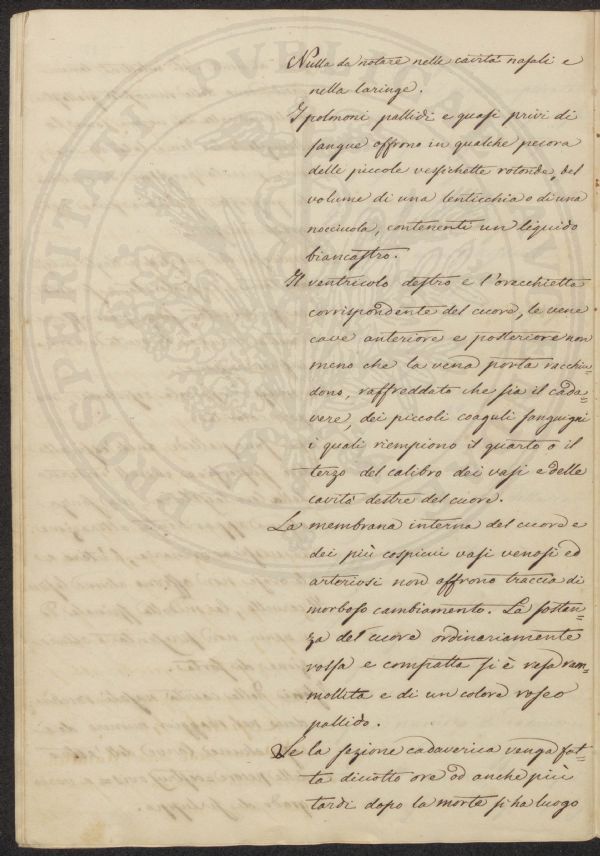 Nulla da notare nelle cavità nasali e
nella laringe.
I polmoni pallidi e quasi privi di
sangue offrono in qualche pecora
delle piccole vessichette rotonde, del
volume di una lenticchia o di una
nocciuola, contenenti un liquido
biancastro.
Il ventricolo destro e l'orecchietta
corrispondente del cuore, le vene
cave anteriore e posteriore non
meno che la vena porta racchiu=
dono, raffreddato che sia il cada=
vere, dei piccoli coaguli sanguigni
i quali riempiono il quarto o il
terzo del calibro dei vasi e delle
cavità destre del cuore.
La membrana interna del cuore e
dei più cospicui vasi venosi ed
arteriosi non offrono traccia di
morboso cambiamento. La sostan=
za del cuore ordinariamente
rossa e compatta si è resa ram=
mollita e di un colore roseo
pallido.
Se la sezione cadaverica venga fat=
ta diciotto ore od anche più
tardi dopo la morte si ha luogo